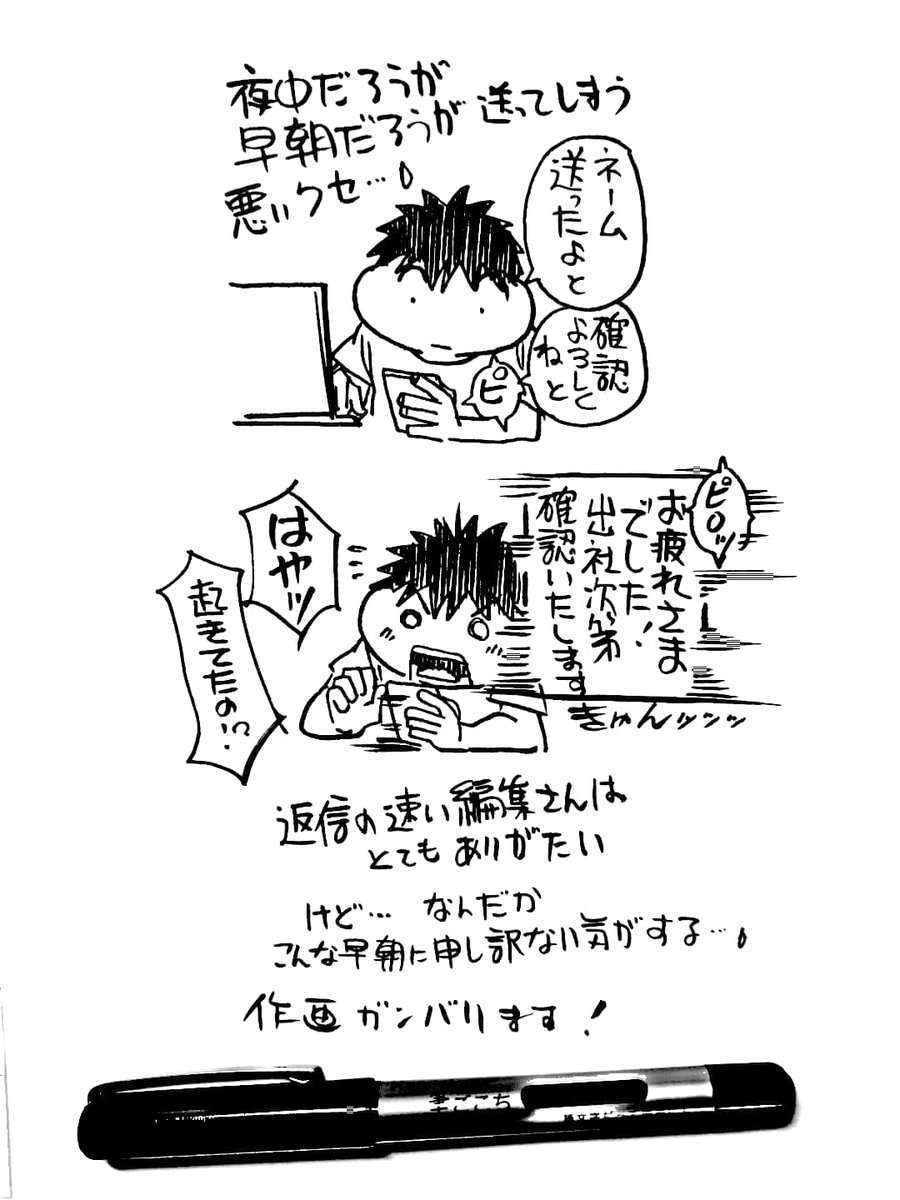 夜中だろうが
早朝だろうが 送ってしまう
悪いクセ…。
ネーム
送ったよと
確認
よろしく
ねと
ピ
ピロッ
お疲れさま
でした!
出社次第
確認いたします
はやッ
起きてたの!?
きゅんッッッ
返信の速い編集さんは
とても ありがたい
けど… なんだか
こんな早朝に申し訳ない気がする…。
作画ガンバります!